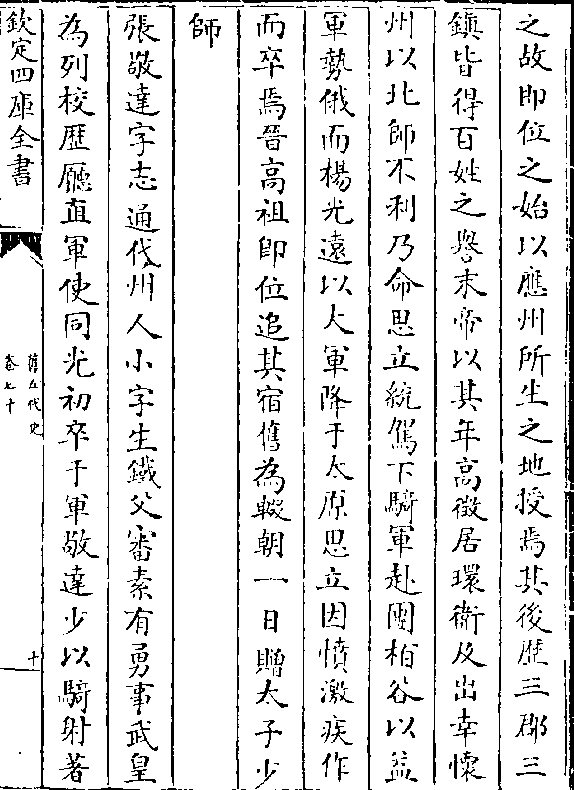 之故即位之始以應州所生之地授焉其後歴三郡三
鎮皆得百姓之譽末帝以其年高徵居環衛及出幸懐
州以北師不利乃命思立統駕下騎軍赴團柏谷以益
軍勢俄而楊光遠以大軍降于太原思立因憤激疾作
而卒焉晉高祖即位追其宿舊為輟朝一日贈太子少
師
張敬達字志通代州人小字生鐵父審素有勇事武皇
為列校歴廳直軍使同光初卒于軍敬達少以騎射著
欽定四庫全書
舊五代史
卷七十
十